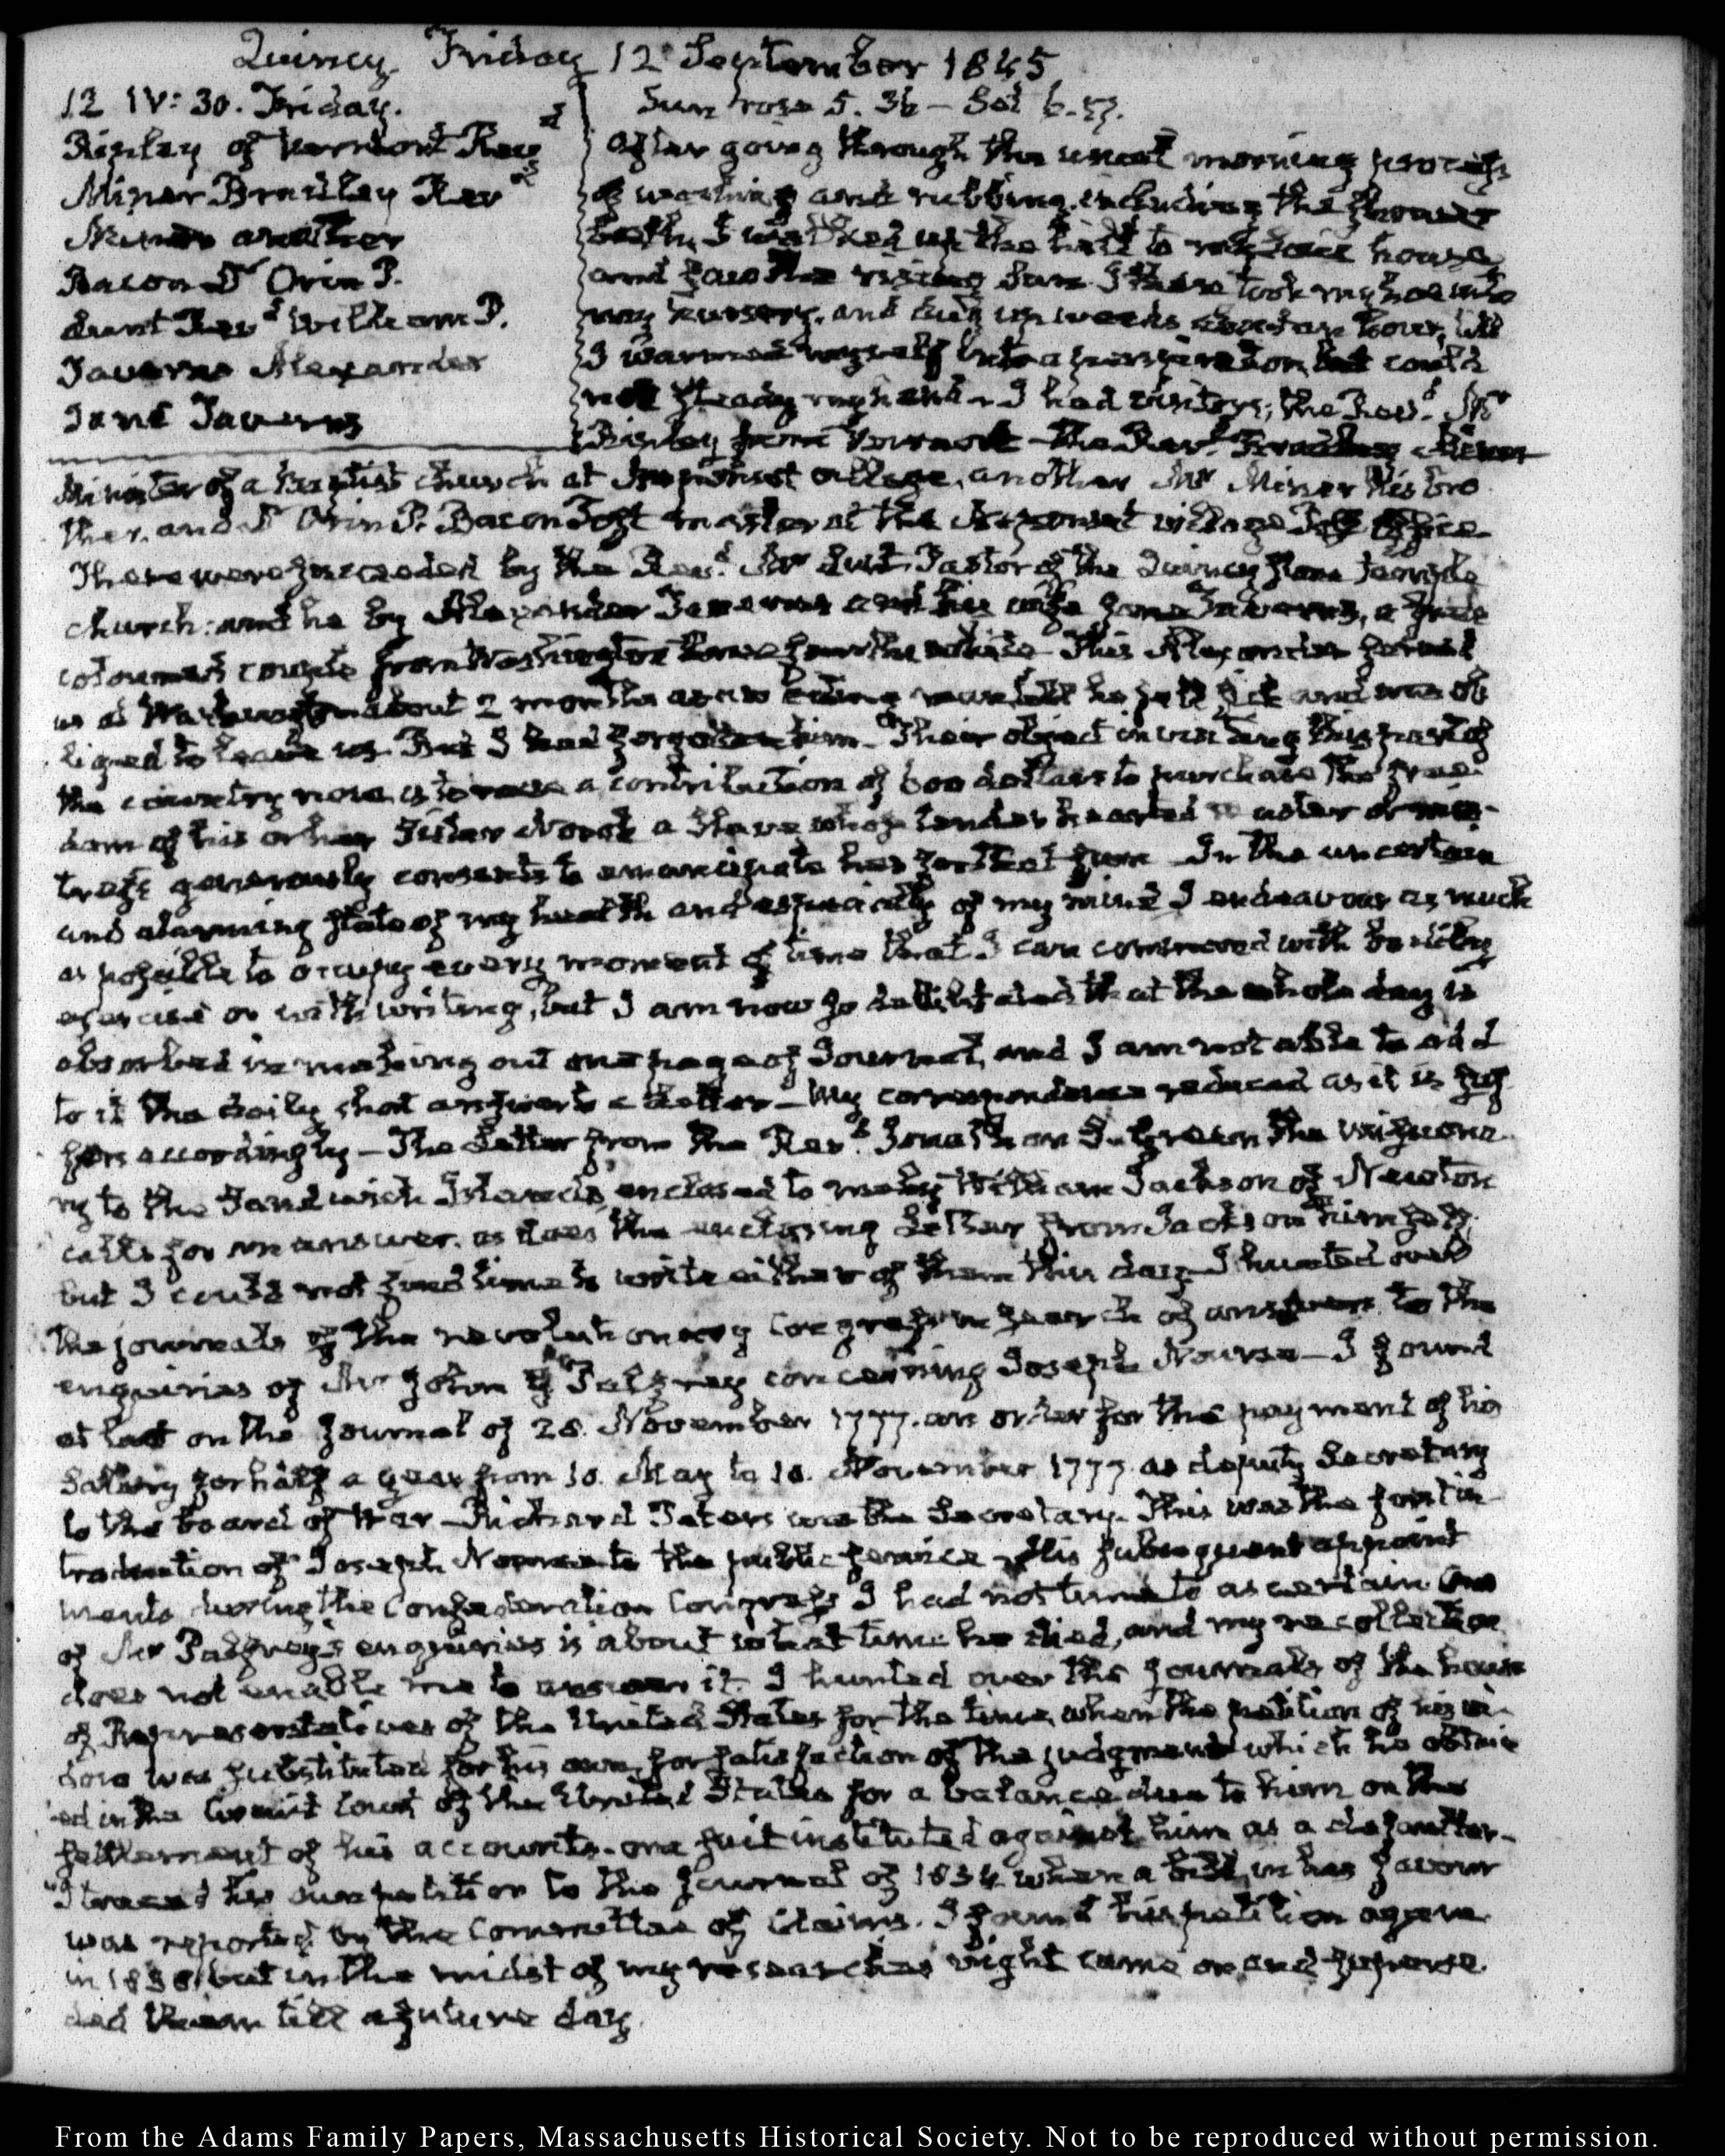 Quincy Friday 12 September 1845
12 IV: 30. Friday.
Ripley of Vermont Revd
Miner Bradley Revd
Miner another
Bacon Dr Orin P.
Lunt Revd William P.
Taverns Alexander
Jane Taverns
Sun rose 5. 36 – Set 6.
After going through the usual morning process
of washing and rubbing, including the shower
bath, I walked up the hill to house
and saw the rising Sun. I then took my hoe into
my nursery, and dug up weeds about an hour, till
I warmed myself into a perspiration but could
not steady my hand. I had visitors; the Revd Mr
Ripley from Vermont – the Revd Bradley Miner
Minister of a baptist church at Neponset village, another Mr Miner his bro
ther, and Dr Orin P. Bacon Post master at the Neponset village Post Office.
These were preceded by the Revd Mr Lunt Pastor of the Quincy Stone Temple
church: and he by Alexander Taverns and his wife Jane Taverns, a free
coloured couple from Washington This Alexander served
us at Washington about 2 months as a till he fell sick and was ob
liged to leave us. But I had forgotten him – Their object in visiting this part of
the country now is to raise a contribution of 600 dollars to purchase the free
dom of his or her Sister a Slave whose tender hearted master or mis-
tress generously consents to emancipate her for that sum In the uncertain
and alarming state of my health and especially of my mind I endeavour as much
as possible to occupy every moment of time that I can command with bodily
exercise or with writing, but I am now so debilitated that the whole day is
absorbed in making out one page of Journal, and I am not able to add
to it the daily short answer to a letter – My correspondence reduced as it is suf
fers accordingly – The Letter from the Revd Jonathan S. Green the missiona
ry to the Sandwich Islands, enclosed to me by William Jackson of Newton
calls for an answer. as does the enclosing Letter from Jackson himself.
but I could not find time to write either of them this day – I hunted over
the journals of the revolutionary Congress in search of answers to the
enquiries of Mr John G. Palfrey concerning Joseph Nourse – I found
at last on the journal of 28. November 1777. an order for the payment of his
Salary for half a year from 10. May to 10. November 1777. as deputy Secretary
to the board of War – Richard Peters was the Secretary. This was the first in
troduction of Joseph Nourse to the public service – His subsequent appoint
ments during the Confederation Congress I had not time to ascertain. One
of Mr Palfrey's enquiries is about what time he died, and my recollection
does not enable me to answer it. I hunted over the journals of the house
of Representatives of the United States for the time when the petition of his wi-
dow was substituted for his own, for satisfaction of the judgment which he obtain
ed in the Circuit Court of the United States for a balance due to him on the
settlement of his accounts – on a suit instituted against him as a defaulter –
I traced his own petition to the journal of 1834 when a bill in his favour
was reported by the Committee of Claims. I found this petition again
in but in the midst of my researches night came on and suspen
ded them till a future day.
From the Adams Family Papers, Massachusetts Historical Society. Not to be reproduced without permission.